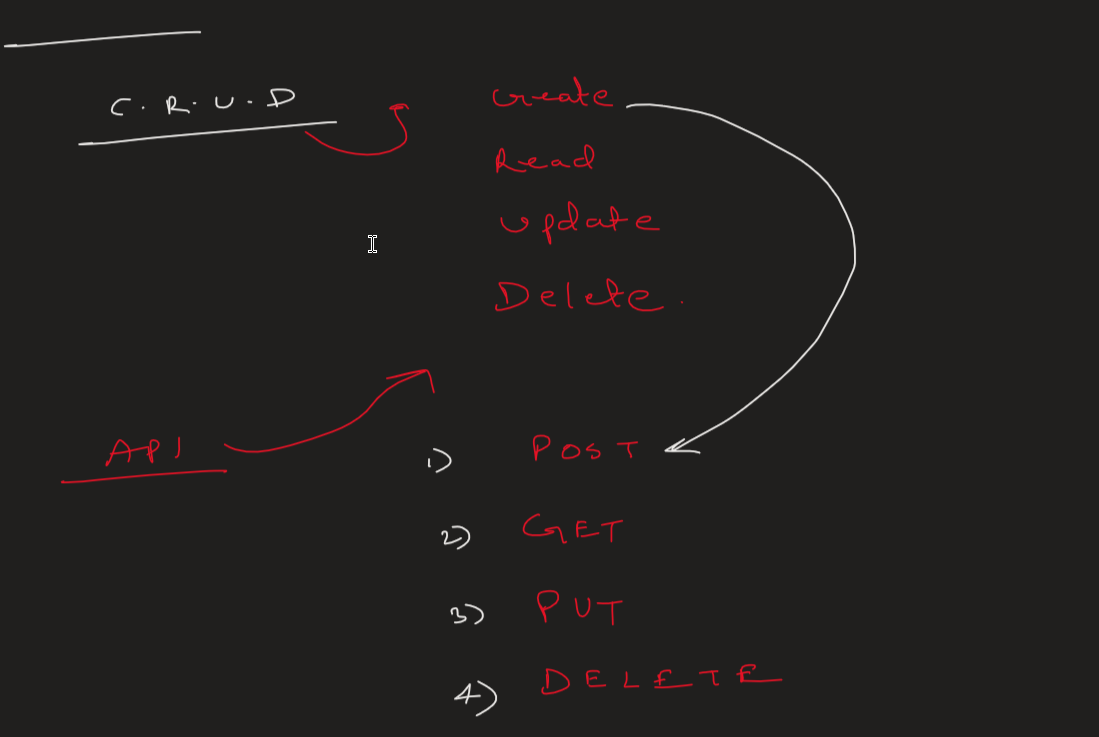 C.R.U.D
Create
Read
Update
Delete.
API
1) POST
2) GET
3) PUT
4) DELETE